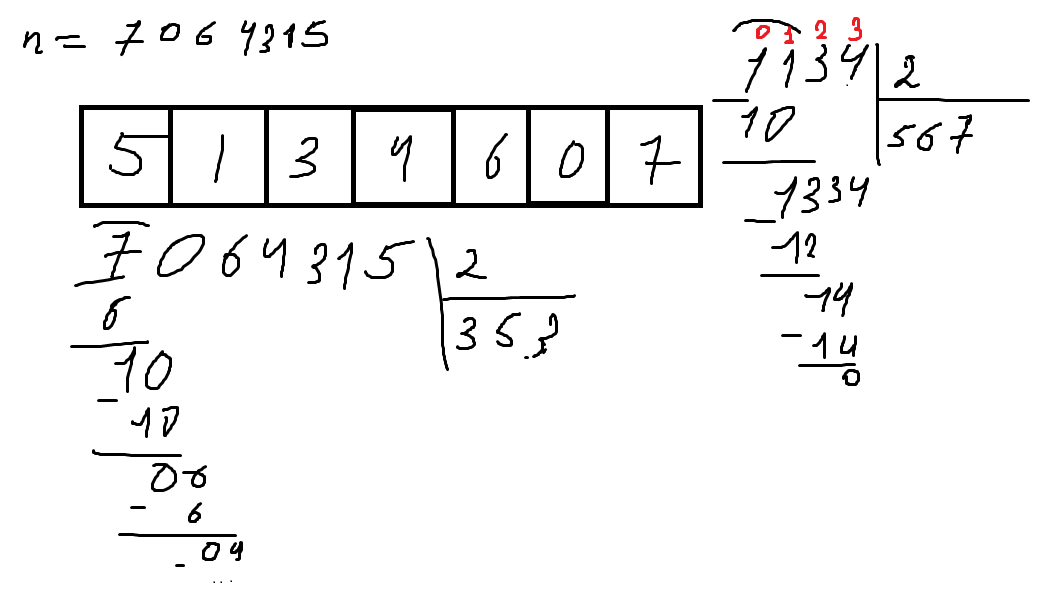 n = 7064315
5 1 3 4 6 0 7
7064315 2
6 353
10
- 10
06
- 6
- 04
...
0 1 2 3
1134 2
- 10 567
1334
- 12
14
- 14
0